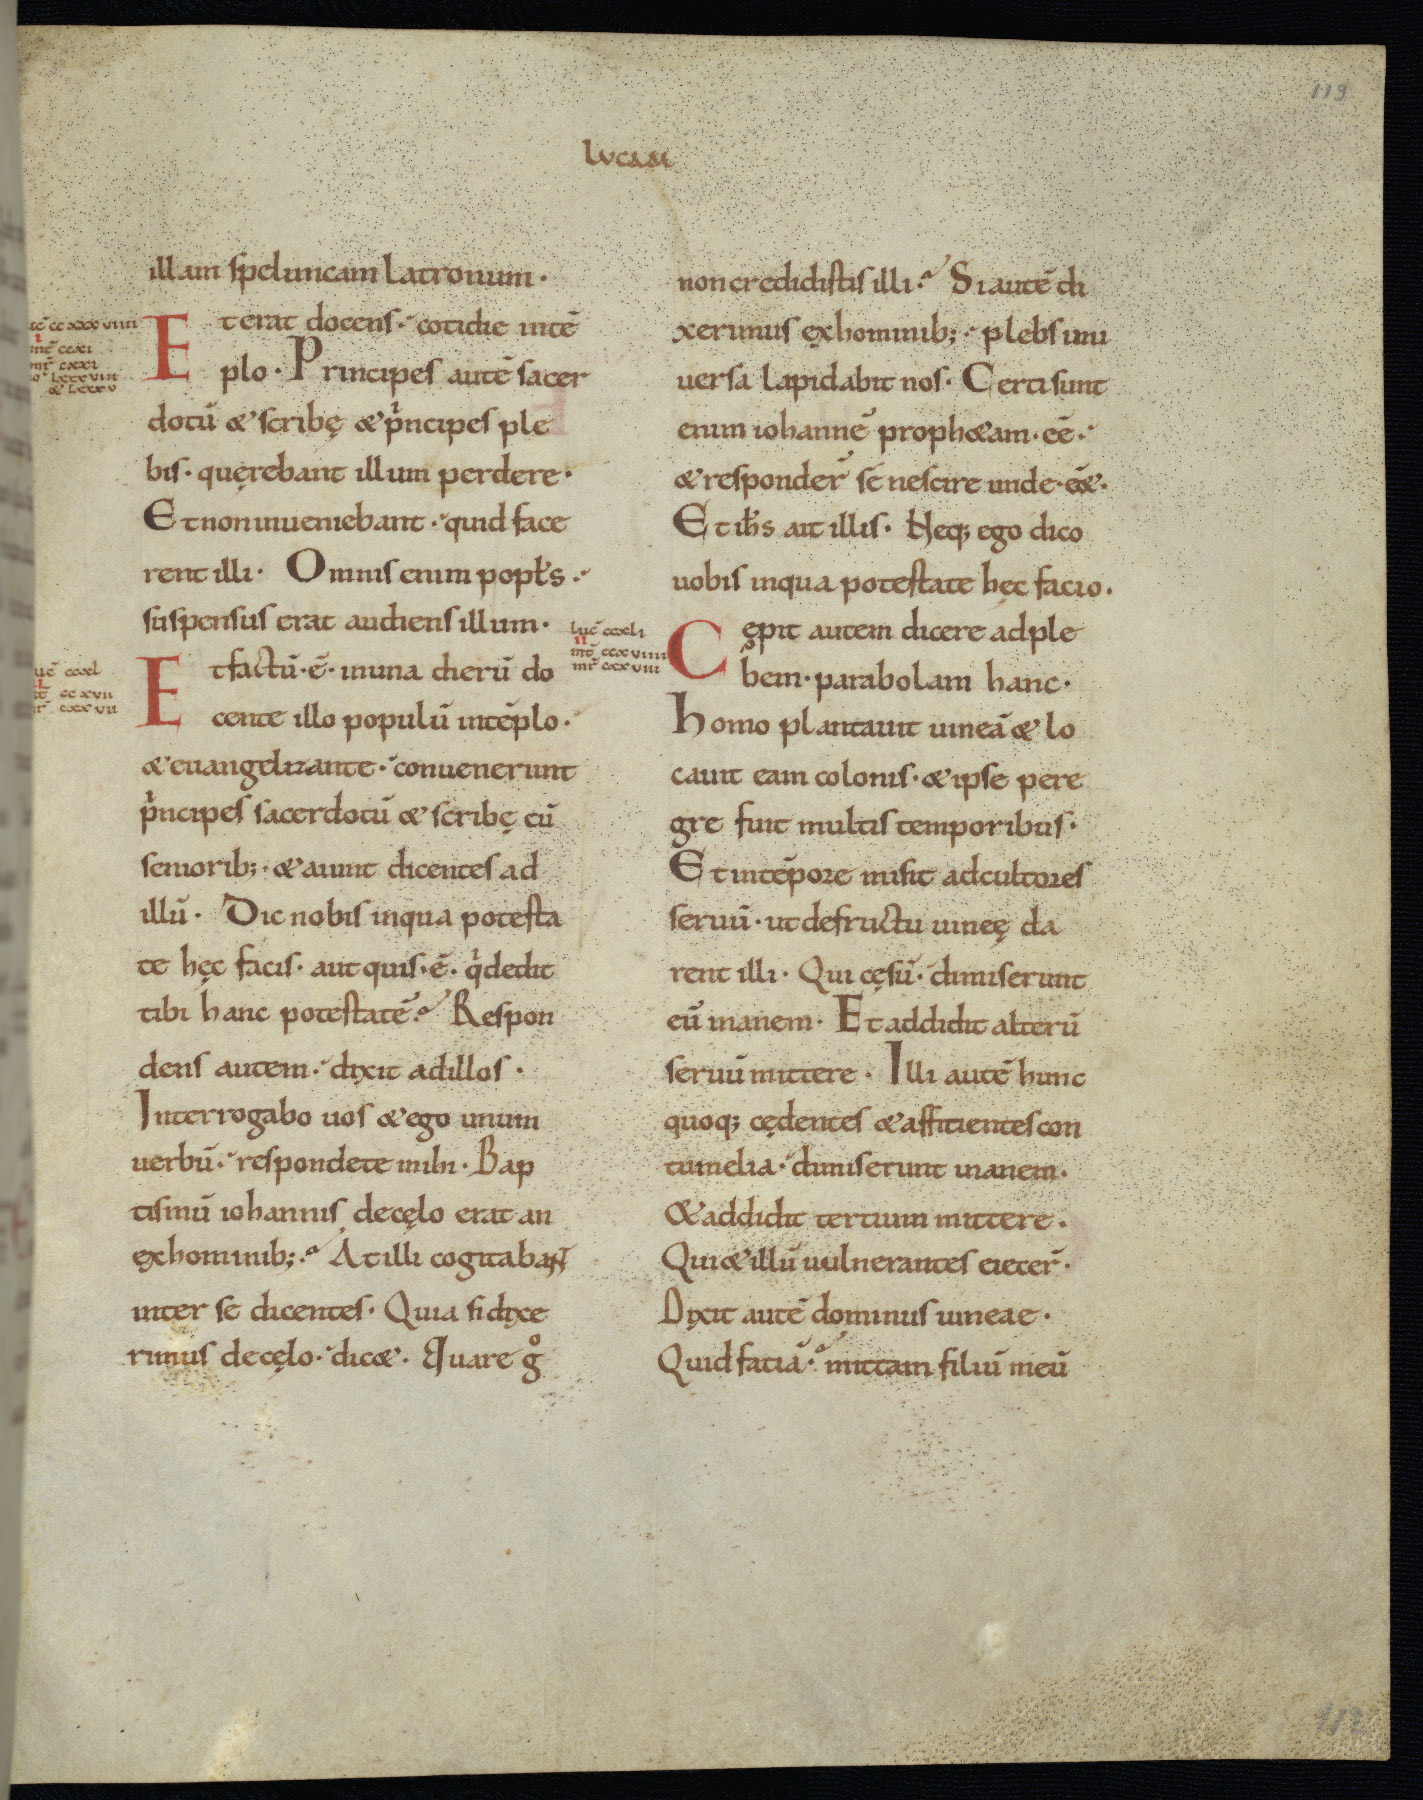 119
lucam
illam speluncam latronum·
Et erat docens· cotidie intē
plo· Principes autē sacer
dotū & scribę & pͥncipes ple
bis· quęrebant illum perdere·
Et non inueniebant· quid face
rent illi· Omnis enim popƚs·
suspensus erat audiens illum·
Et factū·ē· in una dierū do
cente illo populū in tēplo·
& euangelizante· conuenerunt
pͥncipes sacerdotū & scribę cū
seniorib;· & aiunt dicentes ad
illū· Dic nobis in qua potesta
te hęc facis· aut quis·ē· qͥ dedit
tibi hanc potestatē? Respon
dens autem· dixit ad illos·
Interrogabo uos & ego unum
uerbū· respondete mihi· Bap
tismū iohannis de cęlo erat an
ex hominib;? At illi cogitabant
inter se dicentes· Quia si dixe
rimus de cęlo· dic&· Quare gͦ
non credidistis illi? Si autē di
xerimus ex hominib;· plebs uni
uersa lapidabit nos· Certi sunt
enim iohannē proph&am·eē·
& responder̄ se nescire unde·eē&·
Et ihs ait illis· Neq; ego dico
uobis in qua potestate hęc facio·
lucͫ ccxli
ii
mͭ ccxviiii
mr̄ cxxviii
Cępit autem dicere ad ple
bem· parabolam hanc·
homo plantauit uineā & lo
cauit eam colonis· & ipse pere
gre fuit multis temporibus·
Et in tēpore misit ad cultores
seruū· ut de fructu uineę da
rent illi· Qui cęsū· dimiserunt
eū inanem· Et addidit alterū
seruū mittere· Illi autē hunc
quoq; cędentes & afficientes con
tumelia· dimiserunt inanem·
& addidit tertium mittere·
Qui & illū uulnerantes eiecer̄·
Dixit autē dominus uineae·
Quid faciā? mittam filiū meū
112